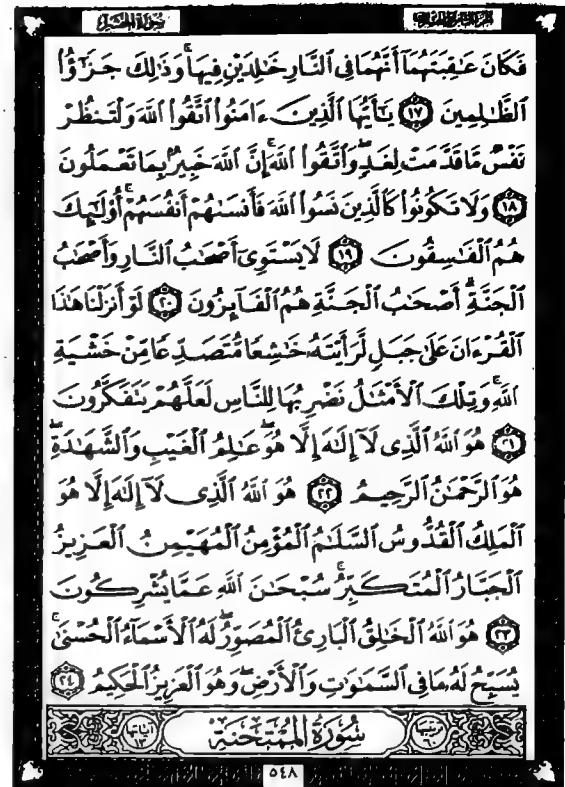 سورة الحشر
فَكَانَ عَٰقِبَتَهُمَآ أَنَّهُمَا فِى ٱلنَّارِ خَٰلِدَيْنِ فِيهَا ۚ وَذَٰلِكَ جَزَٰٓؤُا۟
ٱلظَّٰلِمِينَ ١٧ يَٰٓأَيُّهَا ٱلَّذِينَ ءَامَنُوا۟ ٱتَّقُوا۟ ٱللَّهَ وَلْتَنظُرْ
نَفْسٌ مَّا قَدَّمَتْ لِغَدٍ ۖ وَٱتَّقُوا۟ ٱللَّهَ ۚ إِنَّ ٱللَّهَ خَبِيرٌۢ بِمَا تَعْمَلُونَ
١٨ وَلَا تَكُونُوا۟ كَٱلَّذِينَ نَسُوا۟ ٱللَّهَ فَأَنسَىٰهُمْ أَنفُسَهُمْ ۚ أُو۟لَٰٓئِكَ
هُمُ ٱلْفَٰسِقُونَ ١٩ لَا يَسْتَوِىٓ أَصْحَٰبُ ٱلنَّارِ وَأَصْحَٰبُ
ٱلْجَنَّةِ ۚ أَصْحَٰبُ ٱلْجَنَّةِ هُمُ ٱلْفَآئِزُونَ ٢٠ لَوْ أَنزَلْنَا هَٰذَا
ٱلْقُرْءَانَ عَلَىٰ جَبَلٍ لَّرَأَيْتَهُۥ خَٰشِعًا مُّتَصَدِّعًا مِّنْ خَشْيَةِ
ٱللَّهِ ۚ وَتِلْكَ ٱلْأَمْثَٰلُ نَضْرِبُهَا لِلنَّاسِ لَعَلَّهُمْ يَتَفَكَّرُونَ
٢١ هُوَ ٱللَّهُ ٱلَّذِى لَآ إِلَٰهَ إِلَّا هُوَ ۖ عَٰلِمُ ٱلْغَيْبِ وَٱلشَّهَٰدَةِ ۖ
هُوَ ٱلرَّحْمَٰنُ ٱلرَّحِيمُ ٢٢ هُوَ ٱللَّهُ ٱلَّذِى لَآ إِلَٰهَ إِلَّا هُوَ
ٱلْمَلِكُ ٱلْقُدُّوسُ ٱلسَّلَٰمُ ٱلْمُؤْمِنُ ٱلْمُهَيْمِنُ ٱلْعَزِيزُ
ٱلْجَبَّارُ ٱلْمُتَكَبِّرُ ۚ سُبْحَٰنَ ٱللَّهِ عَمَّا يُشْرِكُونَ
٢٣ هُوَ ٱللَّهُ ٱلْخَٰلِقُ ٱلْبَارِئُ ٱلْمُصَوِّرُ ۖ لَهُ ٱلْأَسْمَآءُ ٱلْحُسْنَىٰ ۚ
يُسَبِّحُ لَهُۥ مَا فِى ٱلسَّمَٰوَٰتِ وَٱلْأَرْضِ ۖ وَهُوَ ٱلْعَزِيزُ ٱلْحَكِيمُ ٢٤
ترتيبها ٦٠ سُورَةُ المُمْتَحنَة آياتها ١٣
٥٤٨